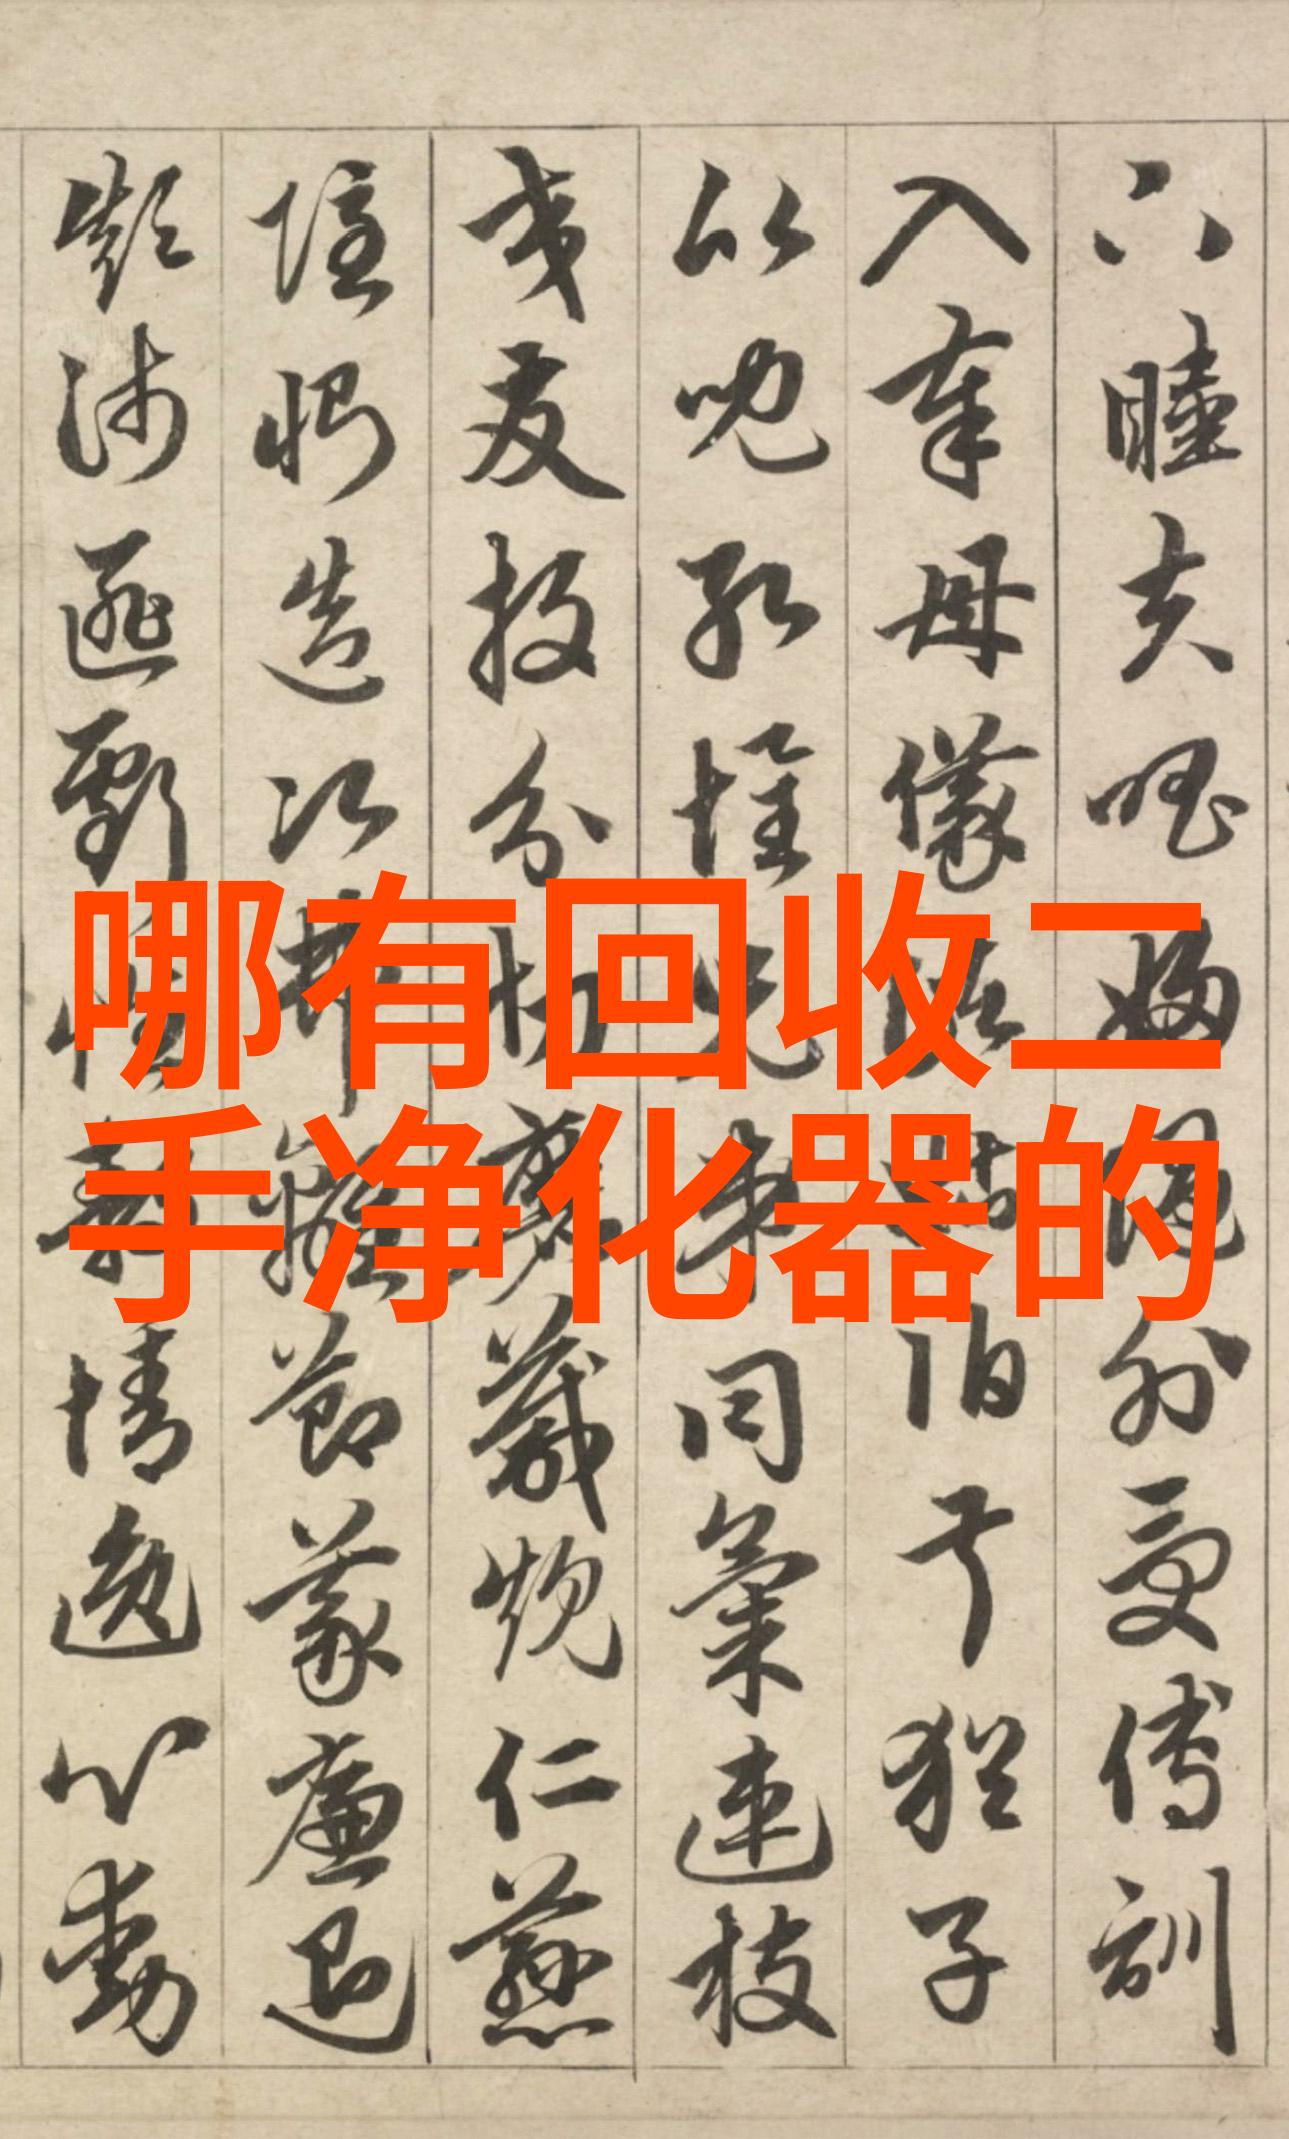 哪有回收二
手净化器的
下睦夫唱婦隨外受傅訓
入奉母儀諸姑伯叔猶子
比兒孔懷兄弟同氣連枝
交友投分切磨箴規仁慈
隱惻造次弗離節義廉退
顛沛匪虧性靜情逸心動